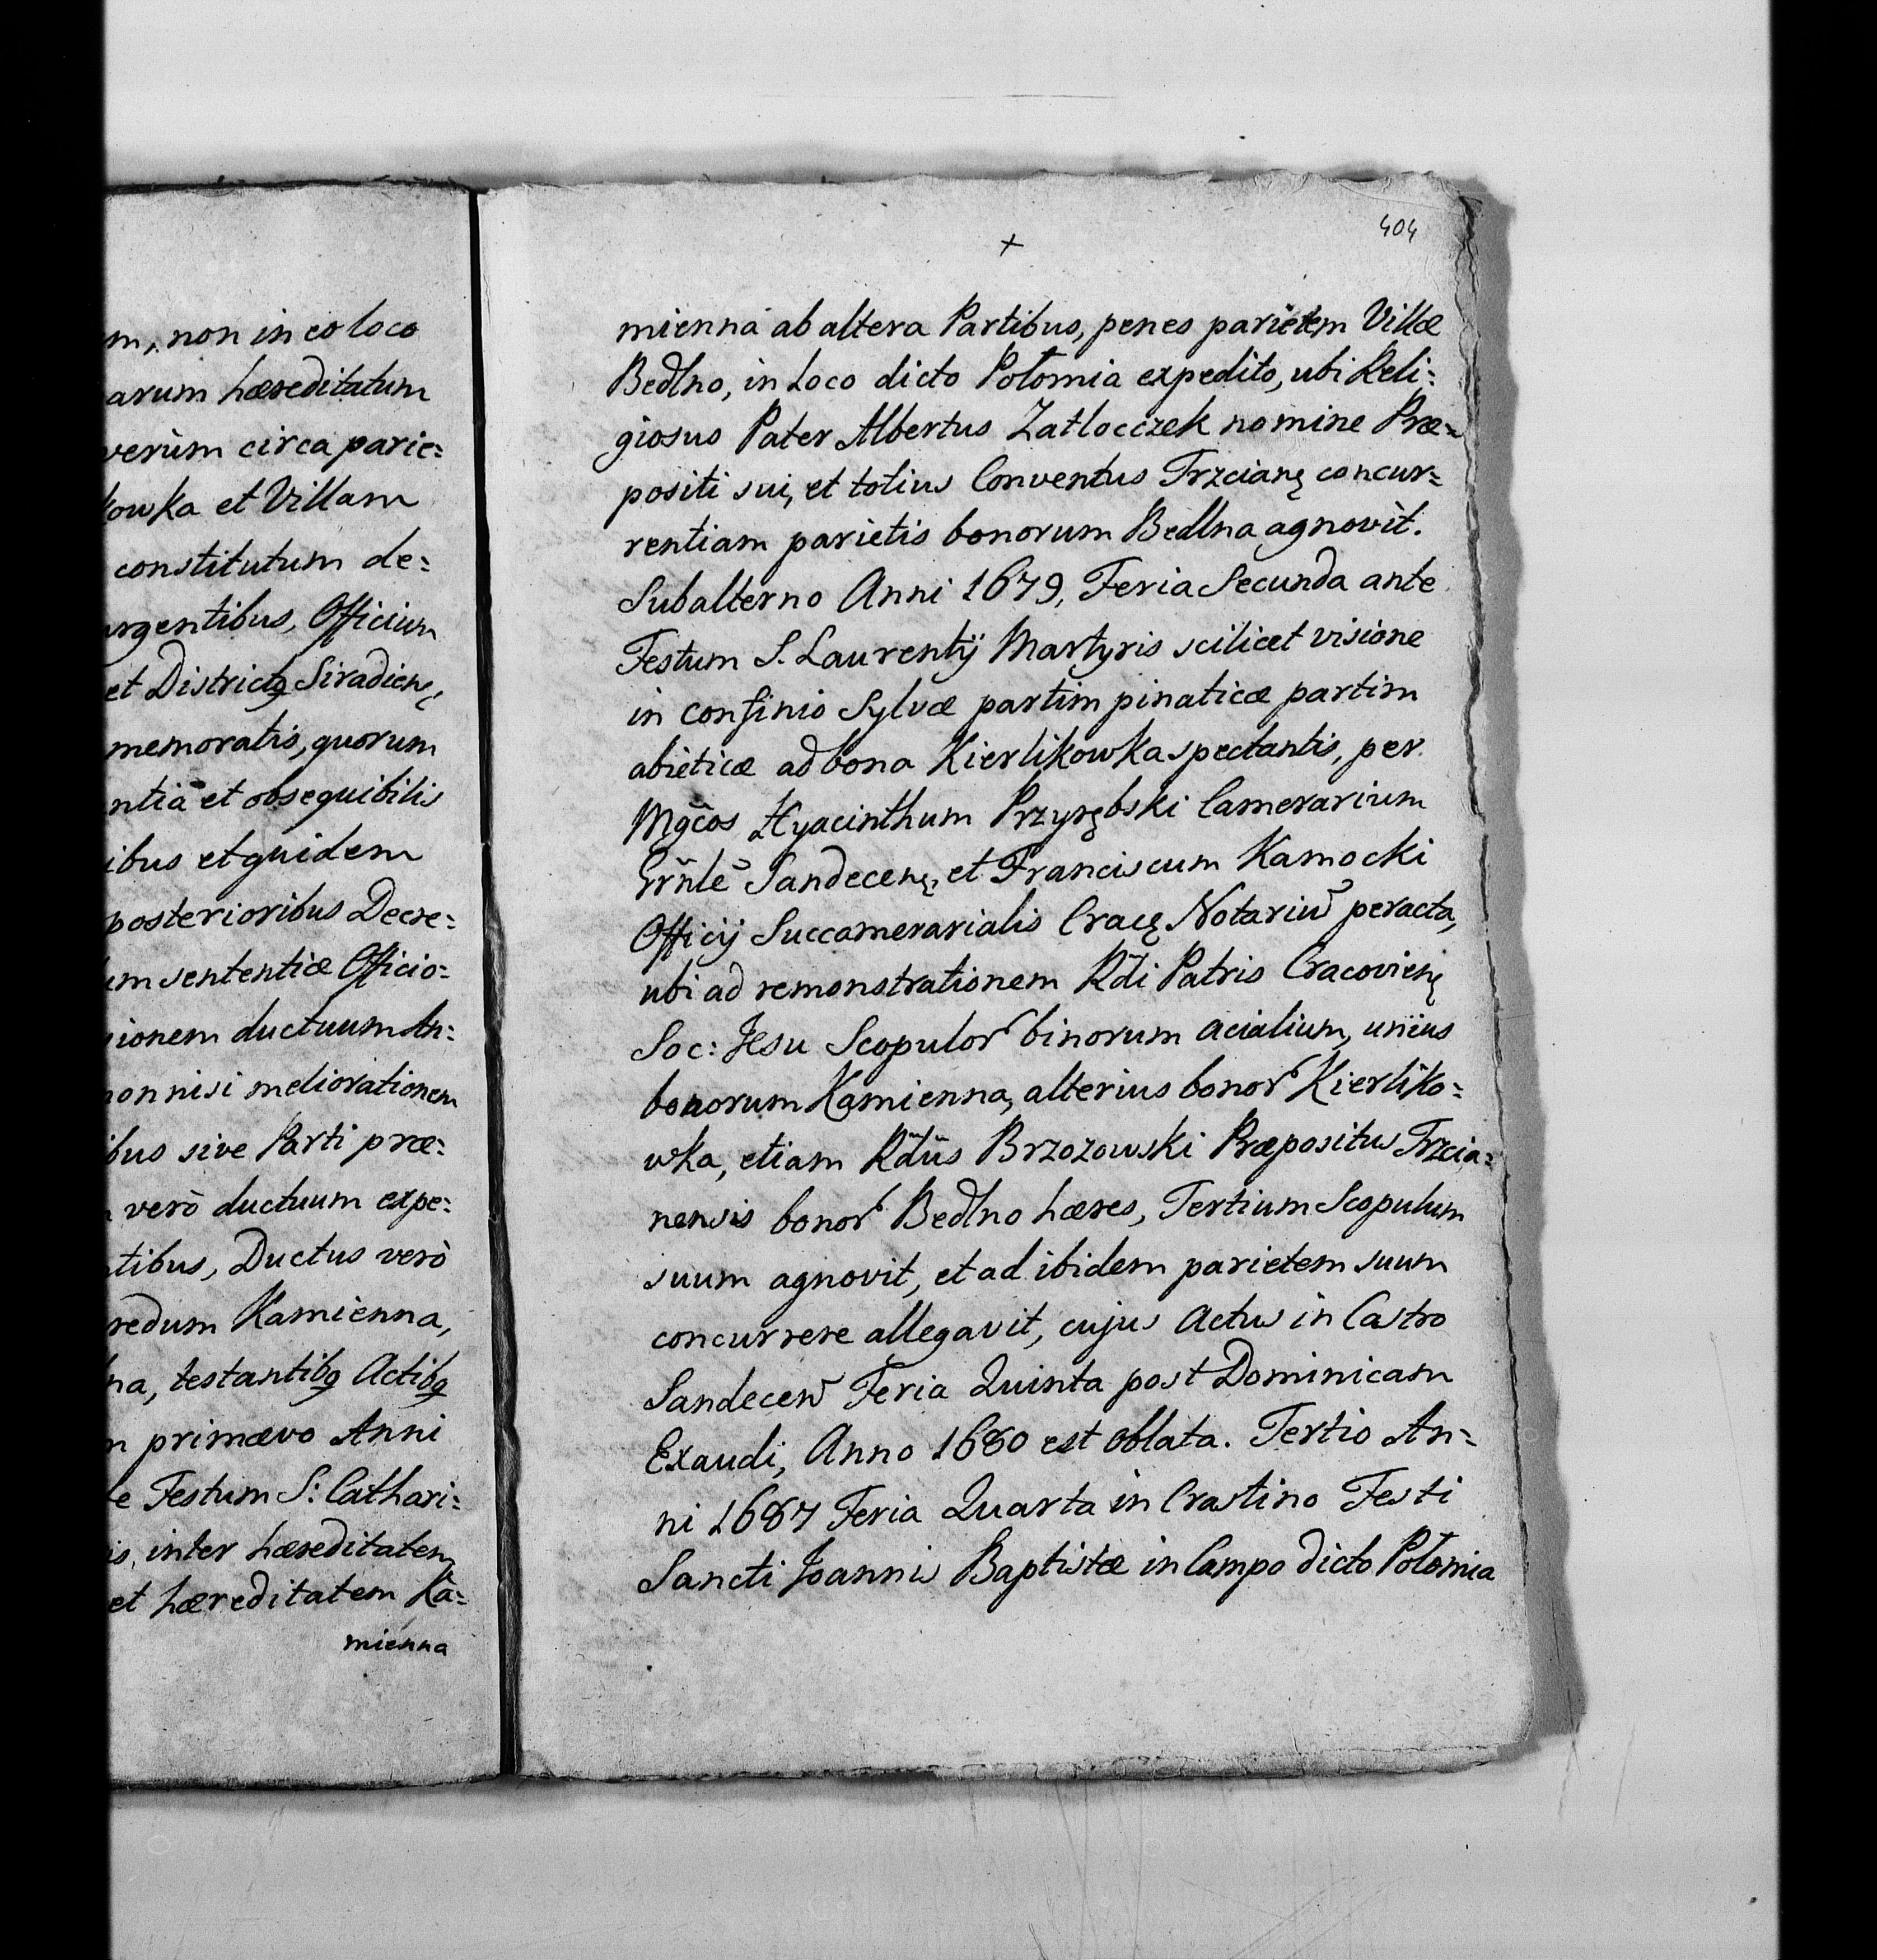 m, non in eo loco
arum hæreditatum
verùm circa parie=
kowka et Villam
constitutum de=
urgentibus, Officium
et Districtq Siradienę,
memoratis, quorum
ntiã et obsequibilis
ibus et quidem
posterioribus Decre=
um sententiæ Officio=
ionem ductuum An=
non nisi meliorationem
ibus sive Parti præ=
verò ductuum expe=
tibus, Ductus verò
redum Kamienna,
na, testantibq Actibq
n primævo Anni
te Festum S: Cathari=
is, inter hæreditatem
et hæreditatem Ka=
mienna
404
+
mienna ab altera Partibus, penes parietem Villæ
Bedlno, in Loco dicto Połomia expedito, ubi Reli=
giosus Pater Albertus Zatłocczek nomine Præ=
positi sui, et totius Conventus Trzcianę concur=
rentiam parietis bonorum Bedlna agnovit.
Subalterno Anni 1679, Feria Secunda ante
Festum S. Laurentij Martyris scilicet visione
in confinio Sylvæ partim pinaticæ partim
abieticæ ad bona Kierlikowka spectantis, per
Mgc̃os Hyacinthum Przyrębski Camerarium
Grñlẽ Sandecenę, et Franciscum Kamocki
Officij Succamerarialis Cracę Notariũ peracta,
ubi ad remonstrationem Rd̃i Patris Cracovienę
Soc: Jesu Scopulor binorum acialium, unius
bonorum Kamienna, alterius bonor Kierliko=
wka, etiam Rd̃us Brzozowski Præpositus Trzcia=
nensis bonor Bedlno hæres, Tertium Scopulum
suum agnovit, et ad ibidem parietem suum
concurrere allegavit, cujus Actus in Castro
Sandeceñ Feria Quinta post Dominicam
Exaudi, Anno 1680 est oblata. Tertio An=
ni 1687 Feria Quarta in Crastino Festi
Sancti Joannis Baptistæ in Campo dicto Połomia